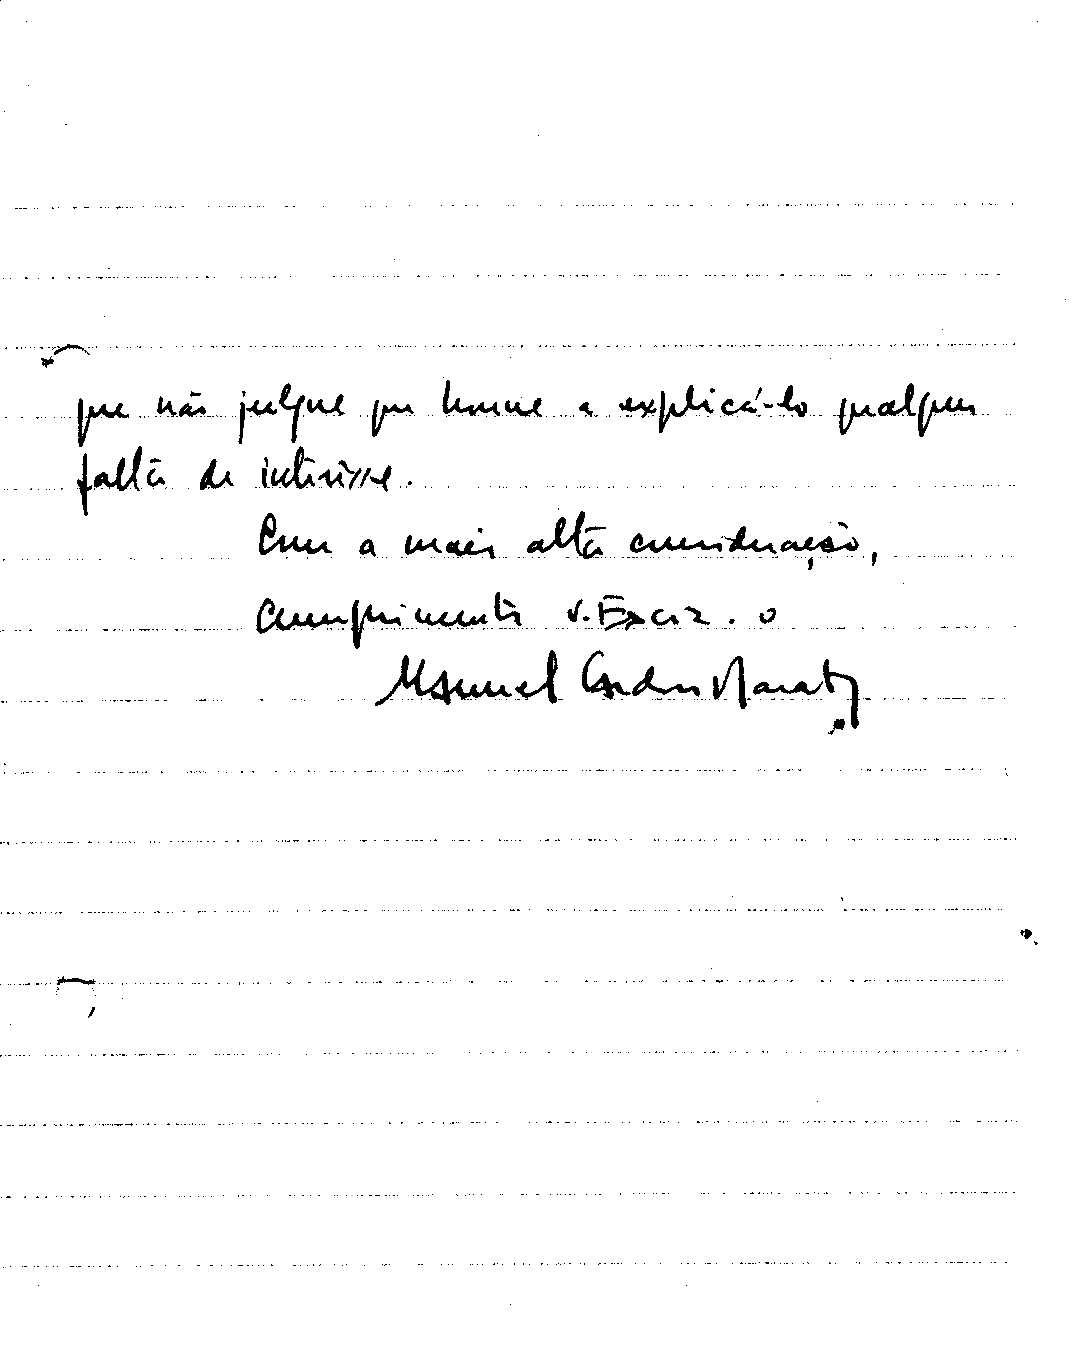 que não julgue que houve a explicá-lo qualquer
falta de interêsse.
Com a mais alta consideração,
cumprimenta V. Excia. o
Manuel Cardoso Marta